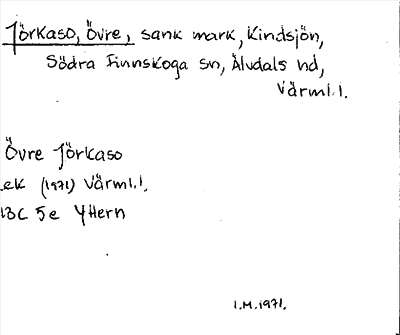 Jörkaso, Övre, sank mark, Kindsjön,
Södra Finnskoga sn, Älvdals hd,
Värml. l.
Övre Jörkaso
ek (1971) Värml. l.
13C 5e Yttern
I.M. 1971.